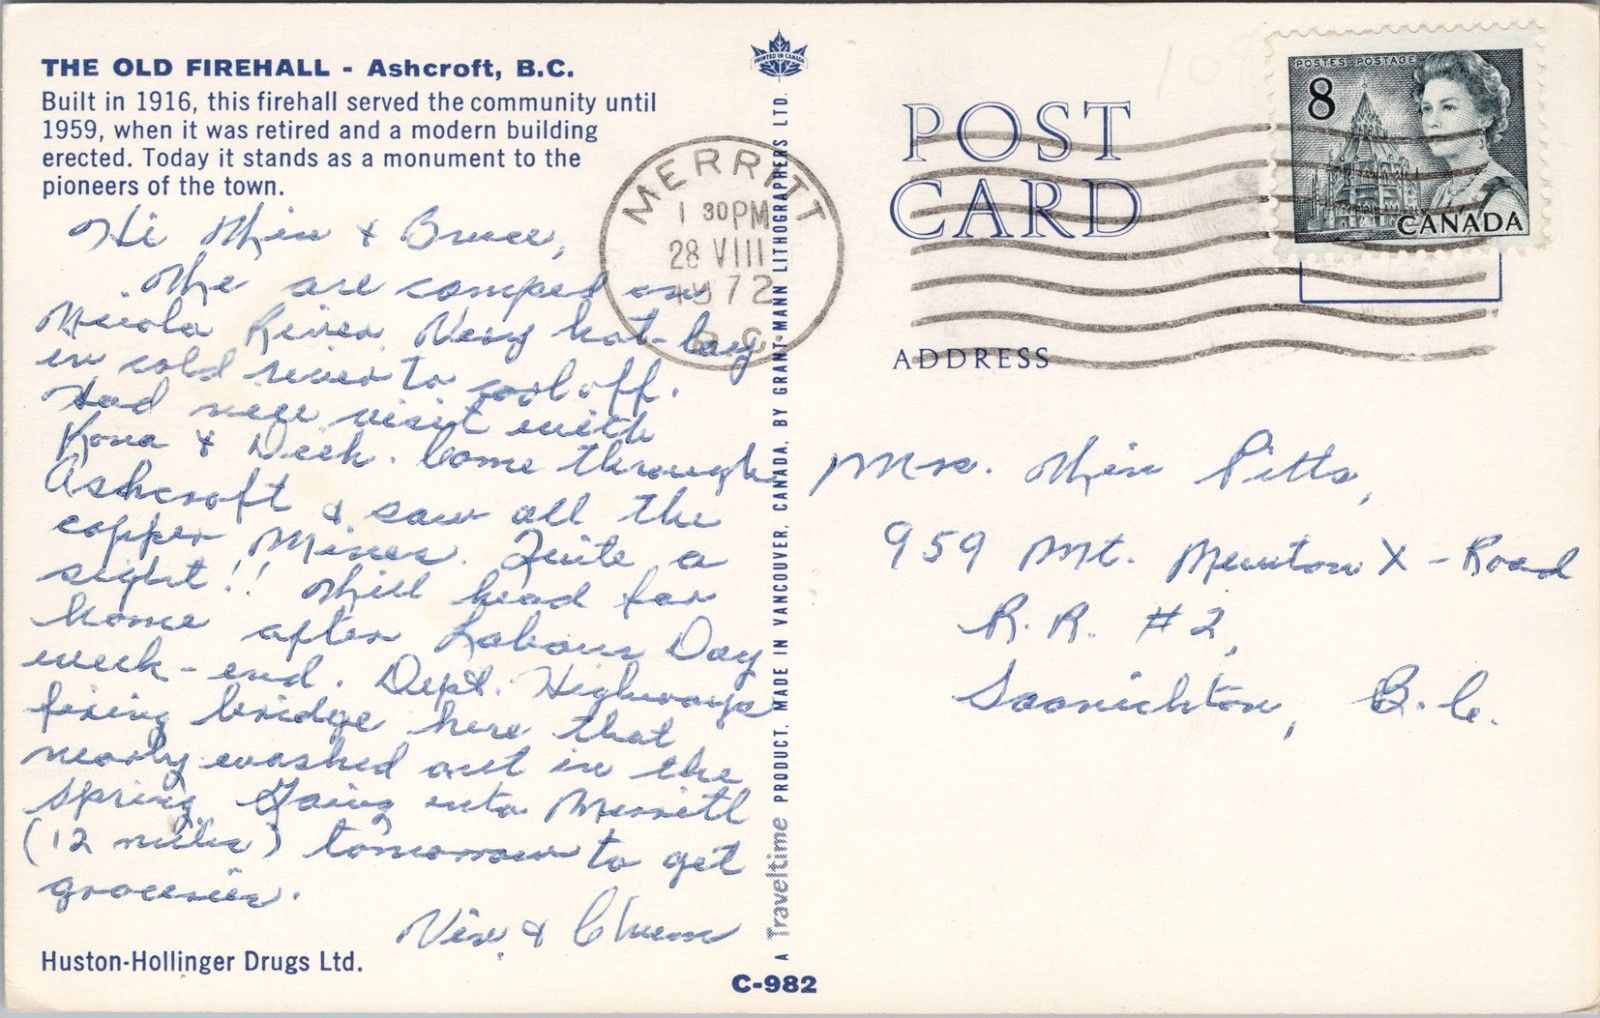 THE OLD FIREHALL - Ashcroft, B.C.
Built in 1916, this firehall served the community until
1959, when it was retired and a modern building
erected. Today it stands as a monument to the
pioneers of the town.
Hi Win & Bruce,
We are camped on
Nicola River. Very hot - lay
in cold river to cool off.
Had nice visit with
Kona & Dick. Come through
Ashcroft & saw all the
copper Mines. Quite a
sight!! Will head for
home after Labour Day
week-end. Dept. Highways
fixing bridge here that
nearly washed out in the
spring. Going into Merritt
(12 miles) tomorrow to get
groceries.
& Chum
Huston-Hollinger Drugs Ltd.
PRINTED IN CANADA
A Traveltime PRODUCT. MADE IN VANCOUVER, CANADA, BY GRANT-MANN LITHOGRAPHERS LTD.
C-982
MERRITT
1 30PM
28 VIII
1972
B.C.
POST
CARD
ADDRESS
POSTES POSTAGE
8
CANADA
Mrs. Win Pitts,
959 Mt. Newton X-Road
R.R. #2,
Saanichton, B.C.